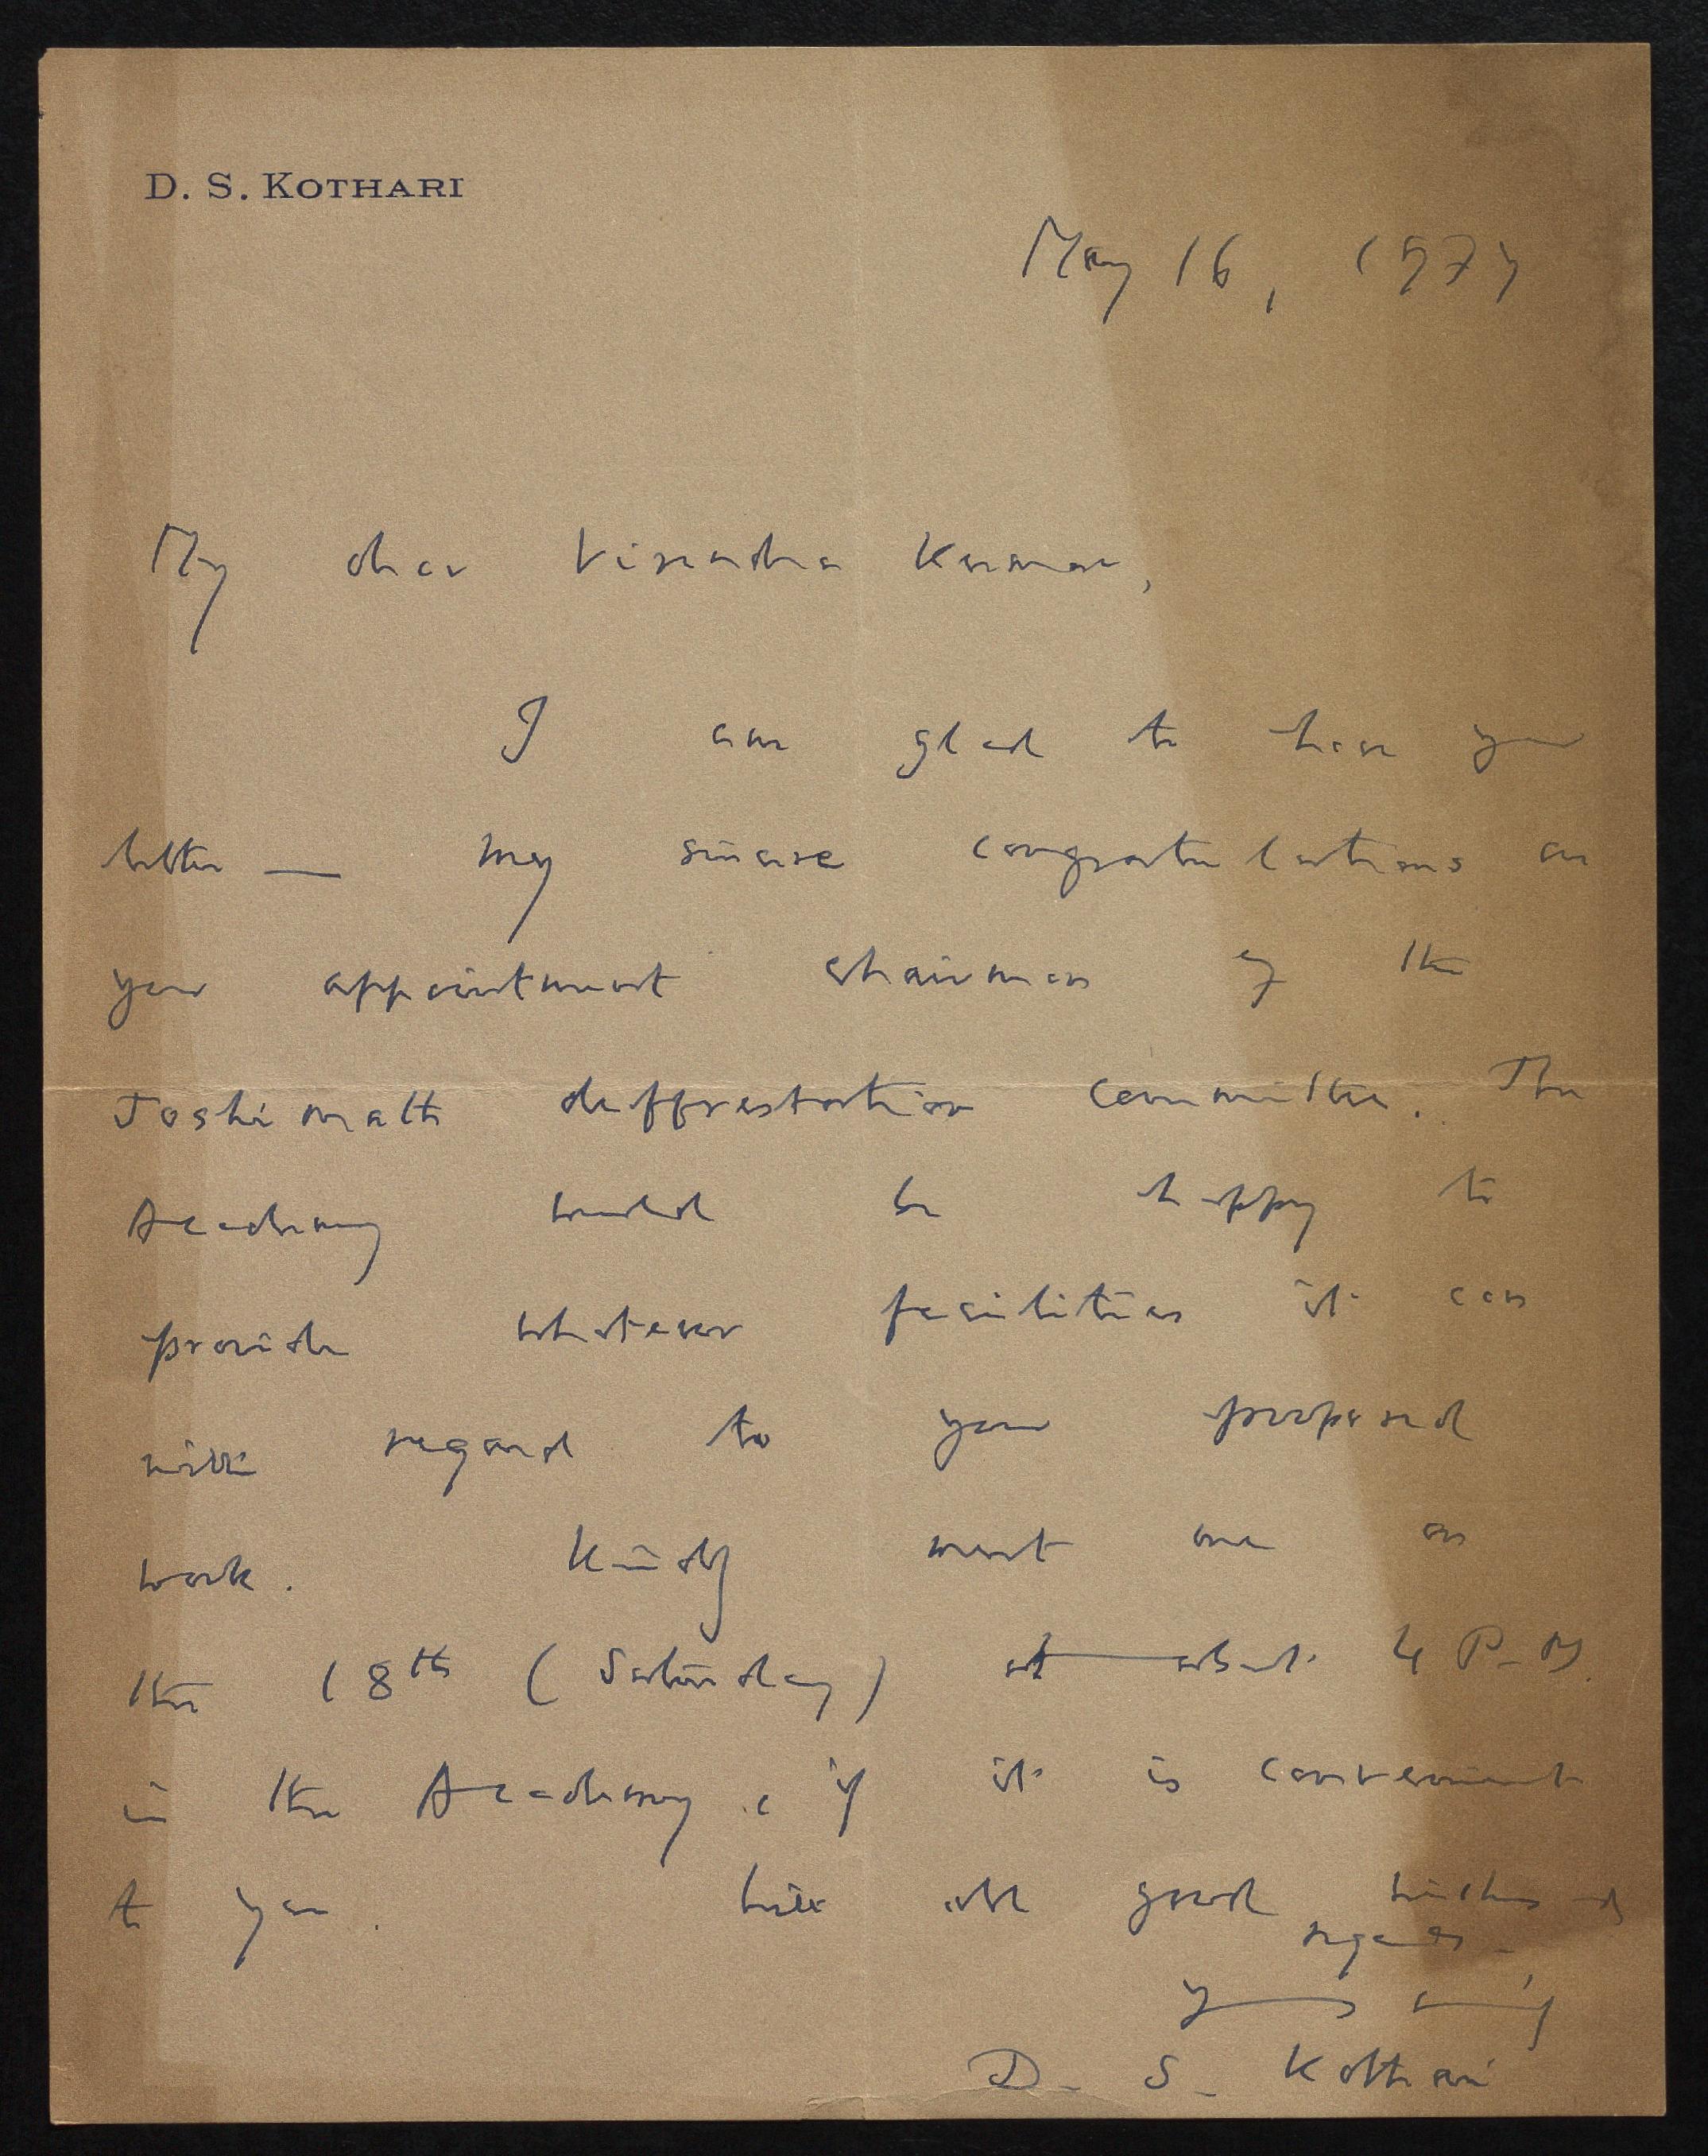 D. S. KOTHARI
May 16, 1974
My dear Virendra Kumar,
I am glad to have your
letter — my sincere congratulations on
your appointment chairman of the
Joshimath deffrestation committee. The
Academy would be happy to
provide whatever facilities it can
with regard to your proposed
work. Kindly meet me on
the 18th (Saturday) at about 4 P.M.
in the Academy, if it is convenient
to you. With all good wishes and
regards.
Yours sincerely
D. S. Kothari